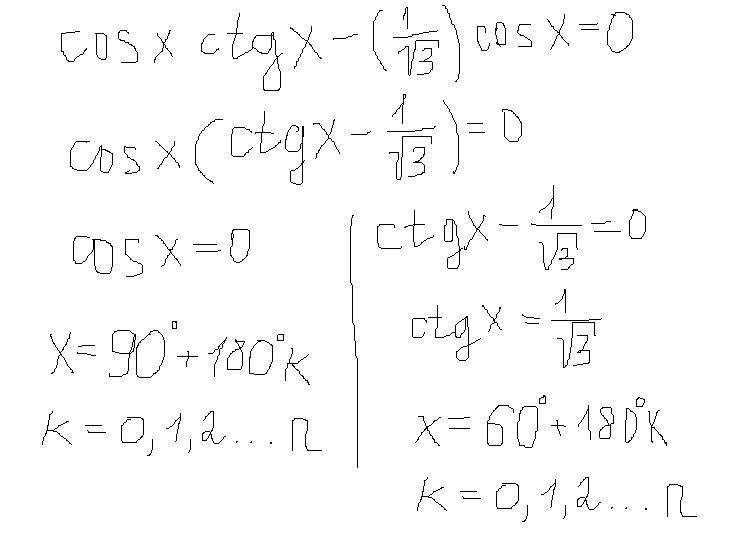 cos x ctgx - (1/√3) cos x = 0
cos x (ctgx - 1/√3) = 0
cos x = 0
x = 90° + 180°k
k = 0, 1, 2 ... n
ctgx - 1/√3 = 0
ctgx = 1/√3
x = 60° + 180°k
k = 0, 1, 2 ... n